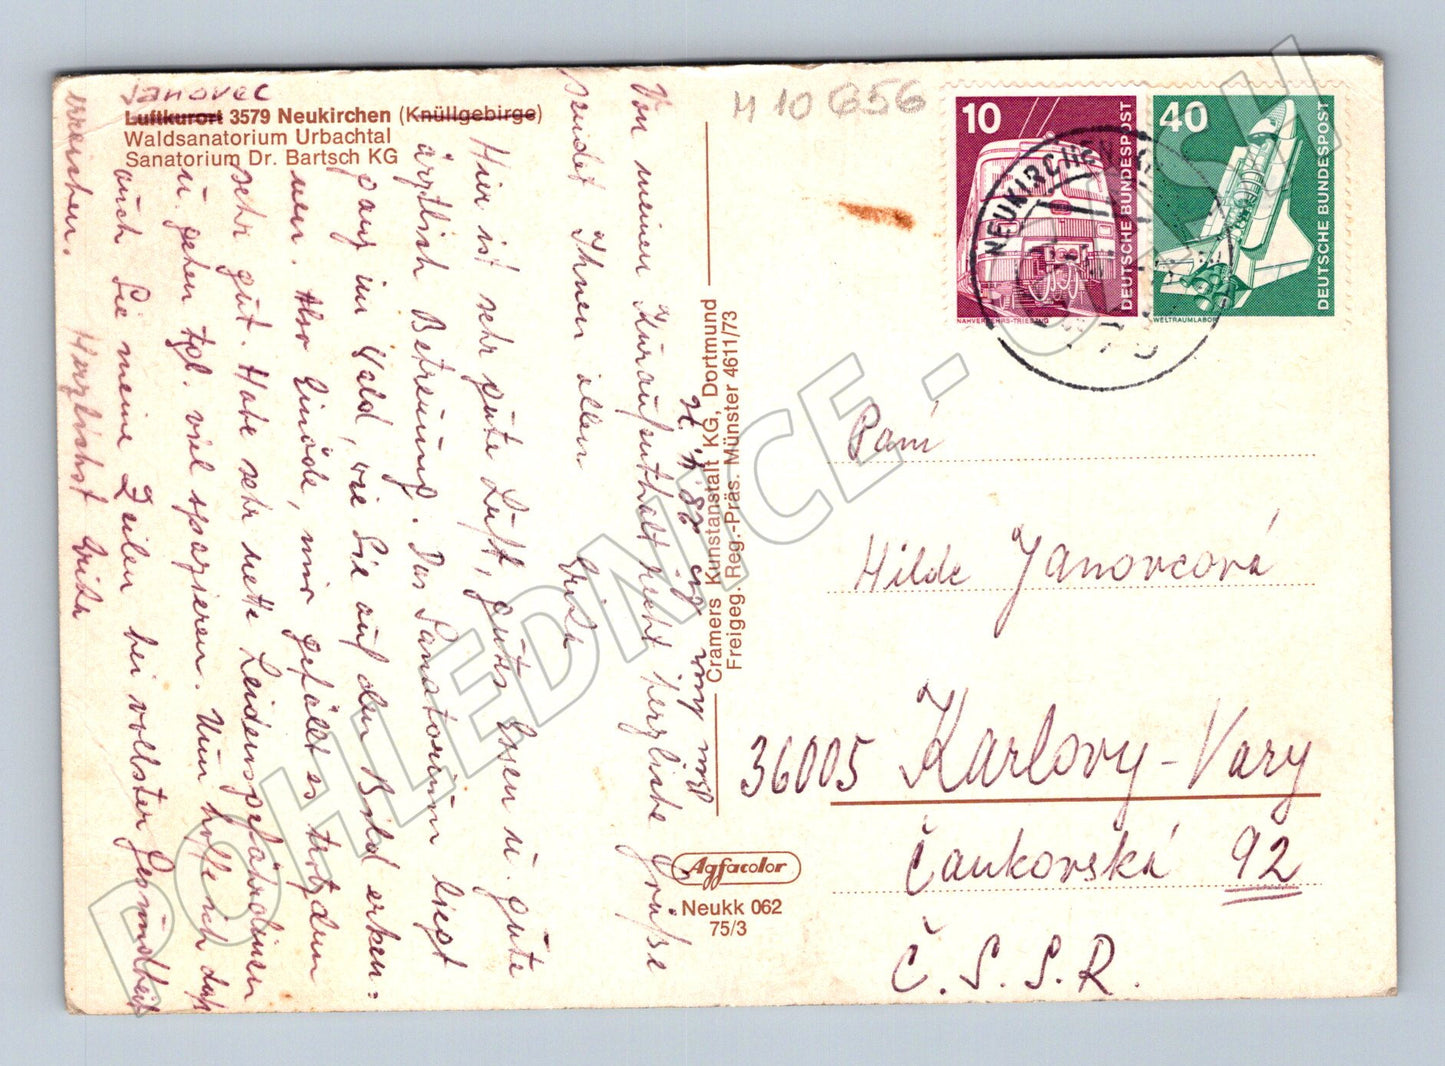 Janovec
Luftkurort 3579 Neukirchen (Knüllgebirge)
Waldsanatorium Urbachtal
Sanatorium Dr. Bartsch KG
H 10 656
10
DEUTSCHE BUNDESPOST
NAHVERKEHRS-TRIEBZUG
40
DEUTSCHE BUNDESPOST
WELTRAUMLABOR
NEUKIRCHEN
Von meinen Kuraufenthalt recht herzliche Grüße
sendet Ihnen allen Erika
Hier ist sehr gute Luft, gutes Essen u. gute
ärztlich Betreuung. Das Sanatorium liegt
ganz im Wald, wie Sie auf dem Bild erken-
nen. Also Einöde, mir gefällt es trotzdem
sehr gut. Habe sehr nette Leidensgefährtinen
u. gehen tgl. viel spazieren. Nun hoffe ich daß
auch Sie meine Zeilen bei vollster Gesundheit
erreichen.
Herzlichst Erika
Cramers Kunstanstalt KG, Dortmund
Freigeg. Reg.-Präs. Münster 4611/73
Agfacolor
Neukk 062
75/3
Paní
Hilde Janovcová
36005 Karlovy-Vary
Čankovská 92
Č.S.S.R.
POHLEDNICE - O